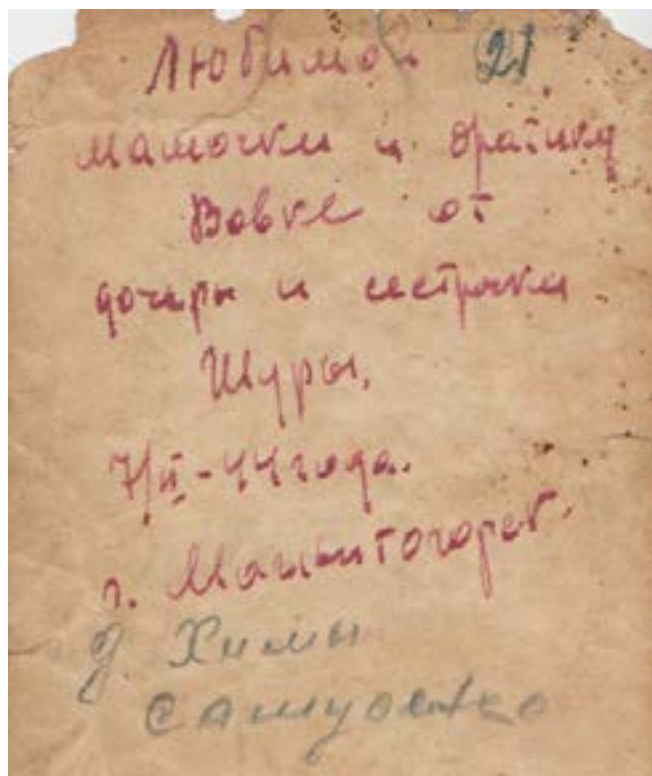 Любимой 21
мамочки и братику
Вовке от
дочеры и сестрочки
Шуры,
7/II-44 года.
г. Магнитогорск.
д. Химы